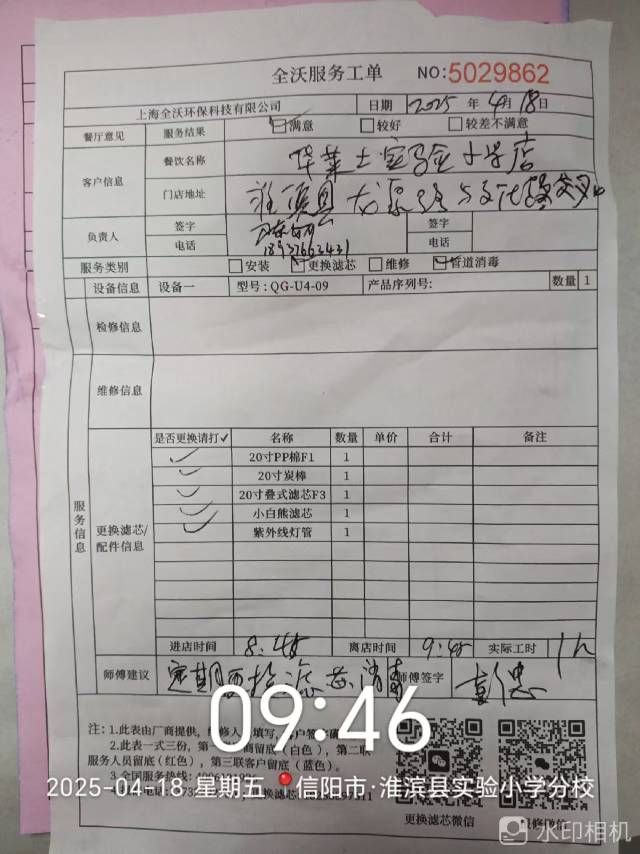 全沃服务工单 NO:5029862
上海全沃环保科技有限公司 日期 2025 年 4月 18日
餐厅意见 服务结果 满意 较好 较差不满意
客户信息 餐饮名称 华莱士实验小学店
门店地址 淮滨县
负责人 签字 签字
电话 电话
服务类别 安装 更换滤芯 维修 管道消毒
设备信息 设备一 型号:QG-U4-09 产品序列号: 数量 1
检修信息
维修信息
服务信息
更换滤芯/配件信息
是否更换请打✓ 名称 数量 单价 合计 备注
✓ 20寸PP棉F1 1
✓ 20寸炭棒 1
✓ 20寸叠式滤芯F3 1
✓ 小白熊滤芯 1
✓ 紫外线灯管 1
进店时间 8:45 离店时间 9:45 实际工时 1h
师傅建议 定期更换滤芯、消毒 师傅签字
注:1.此表由厂商提供,维修人 填写,
2.此表一式三份,第一 商留底(白色),第二联
服务人员留底(红色),第三联客户留底(蓝色)。
3.全国服务热线:
更换滤芯微信 报修微信
09:46
2025-04-18 星期五 信阳市·淮滨县实验小学分校
水印相机